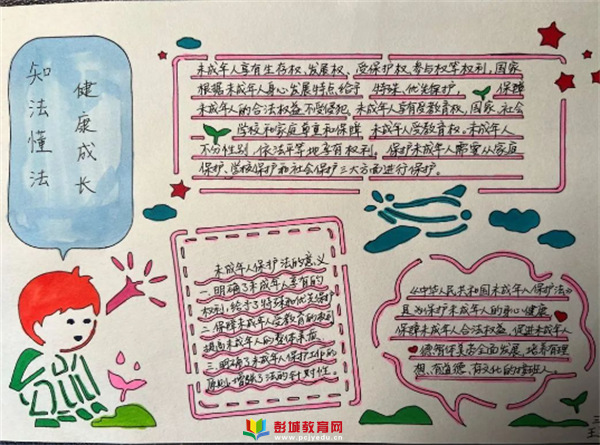 知法懂法
健康成长
未成年人享有生存权、发展权、受保护权、参与权等权利,国家
根据未成年人身心发展特点给予特殊、优先保护,保障
未成年人的合法权益不受侵犯。未成年人享有受教育权,国家、社会
学校和家庭尊重和保障未成年人受教育权。未成年人
不分性别,依法平等地享有权利。保护未成年人需要从家庭
保护、学校保护和社会保护三大方面进行保护。
未成年人保护法的意义
一.明确了未成年人享有的
权利,给予了特殊和优先保护
二.保障未成年人受教育的权利
提高未成年人的整体素质
三.明确了未成年人保护工作的
原则,增强了法的针对性
《中华人民共和国未成年人保护法》
是为保护未成年人的身心健康
保障未成年人合法权益,促进未成年人
德智体美劳全面发展,培养有理
想、有道德、有文化的接班人。
三
王
彭城教育网
www.pcjyedu.cn